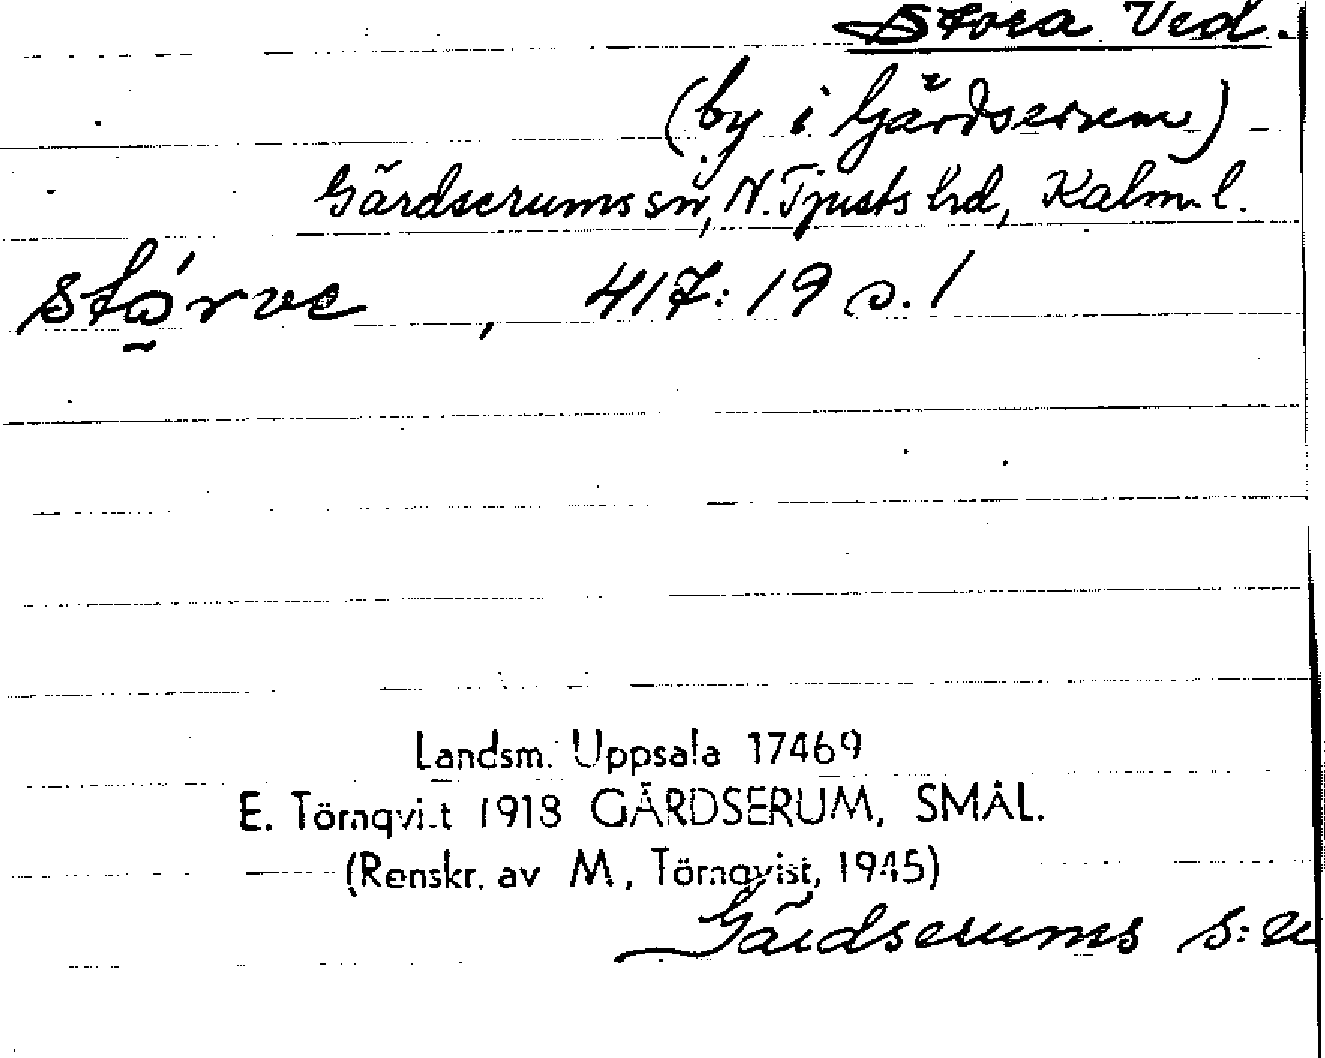 Stora Ved.
(by i Gärdserum)
Gärdserums sn, N. Tjusts hd, Kalm. l.
417:19 s. 1
Landsm. Uppsala 17469
E. Törnqvist 1918 GÄRDSERUM, SMÅL.
(Renskr. av M. Törnqvist, 1945)
Gärdserums s:n